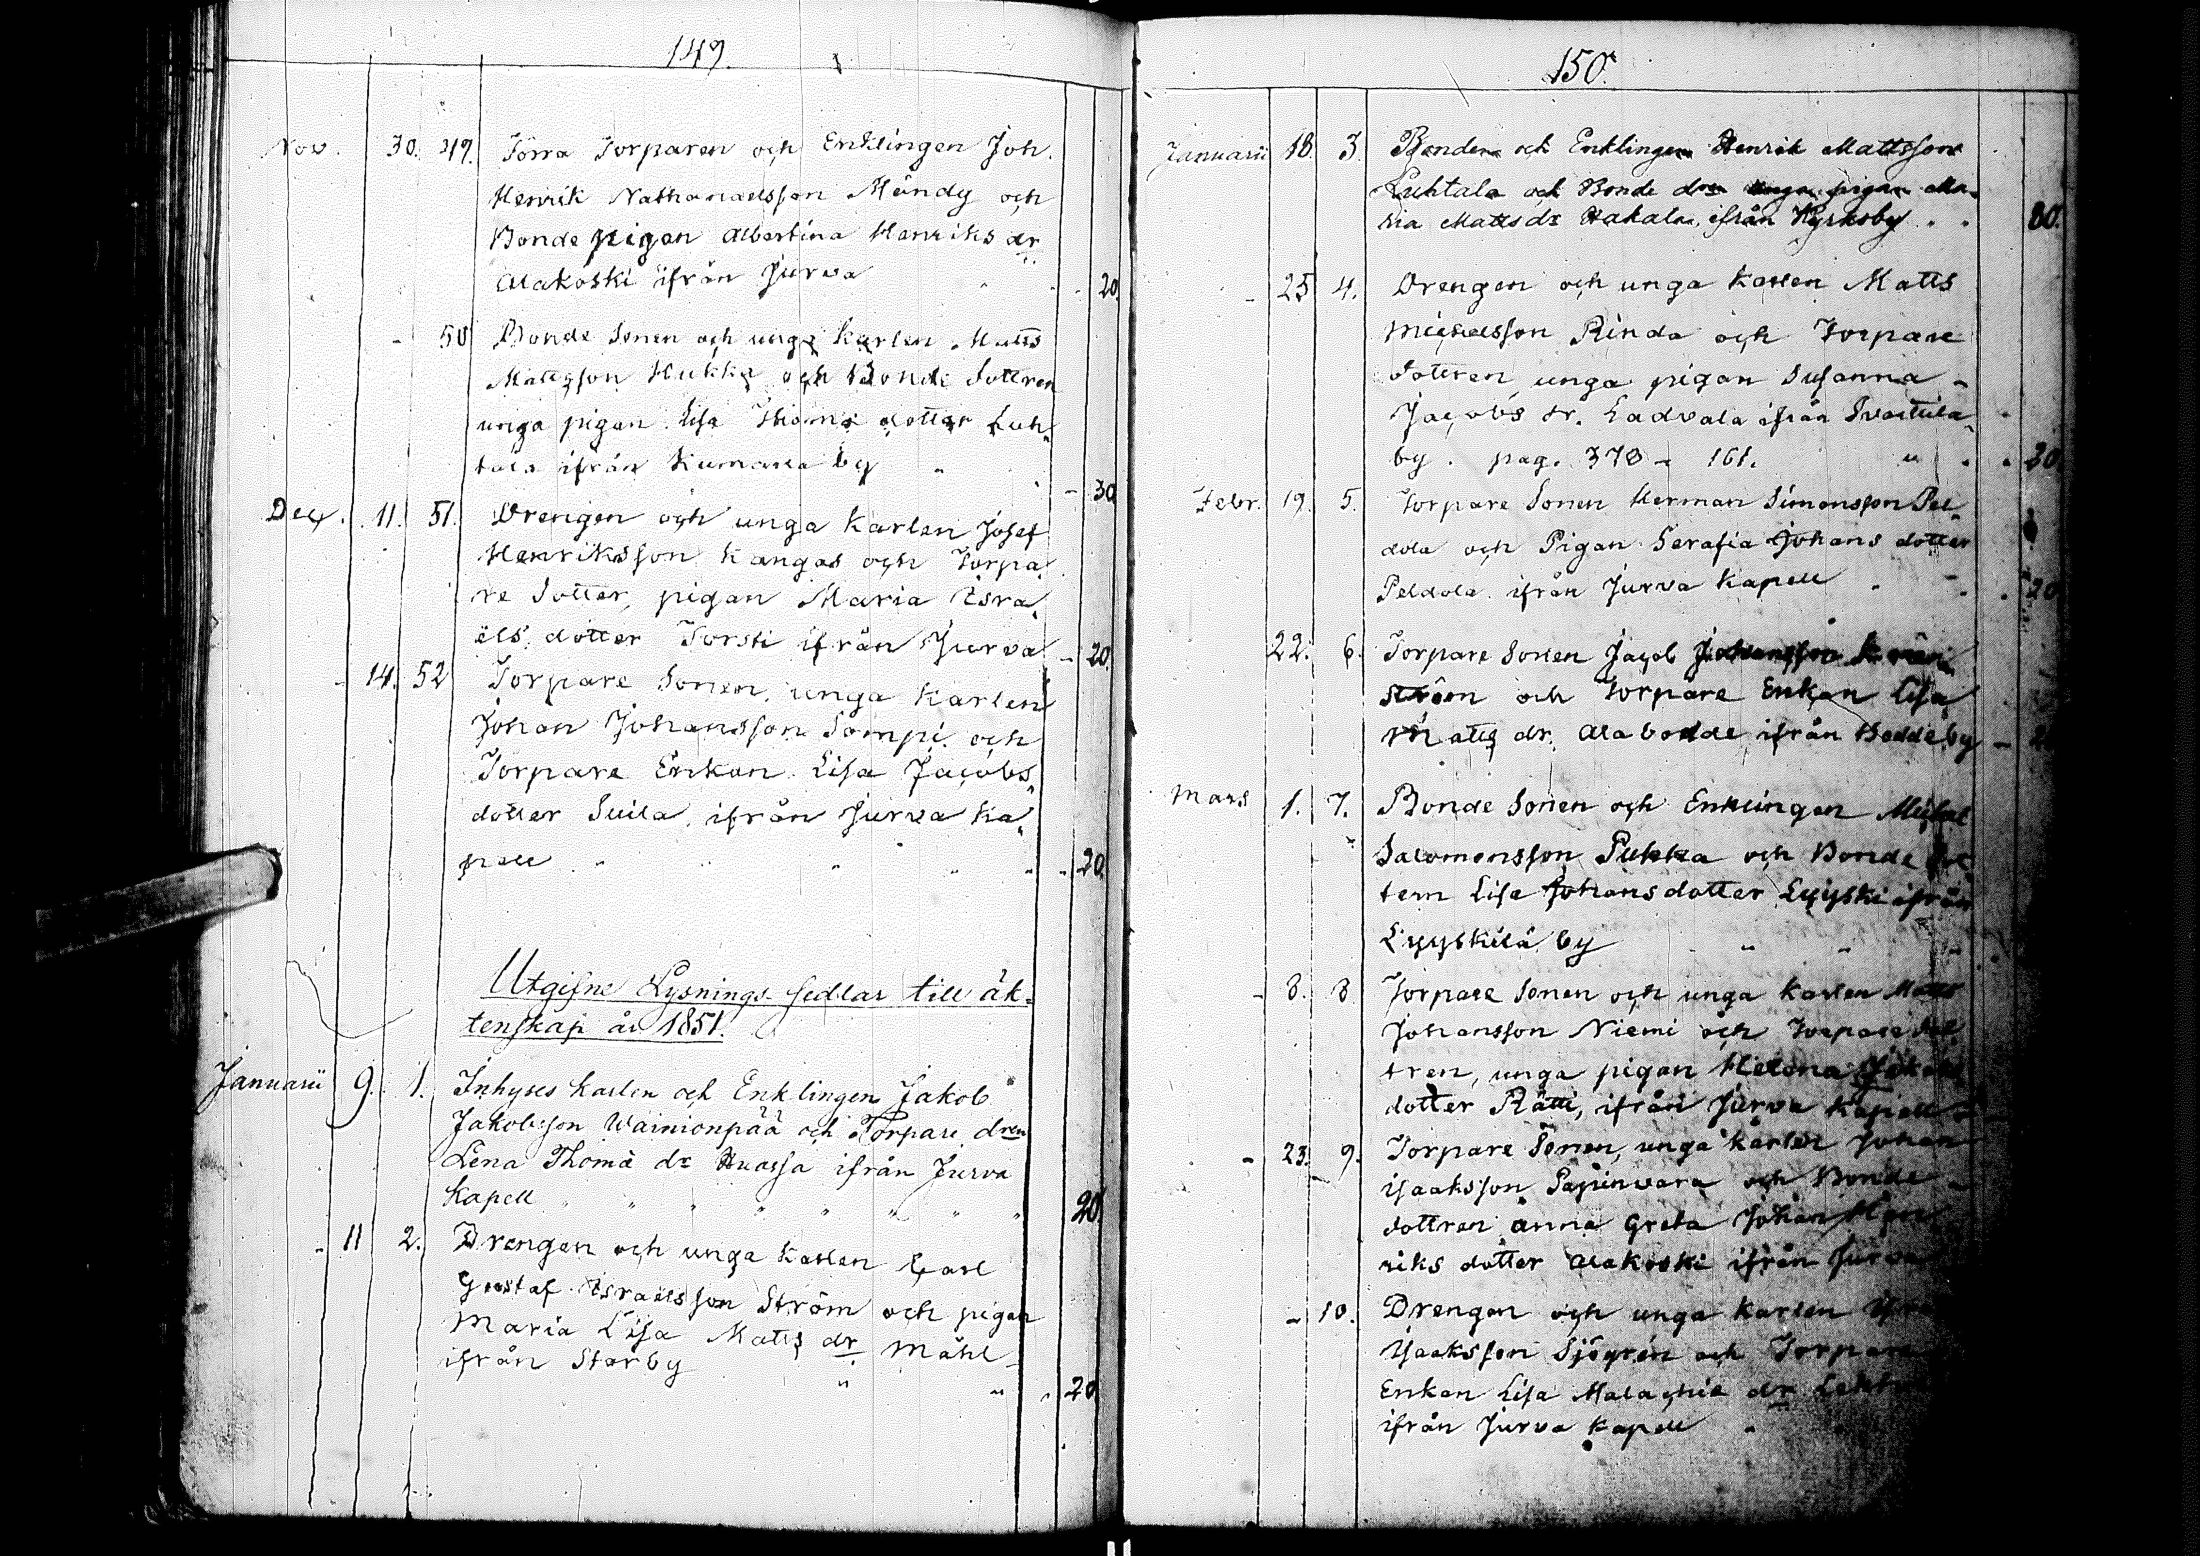 149.
Nov. 30. 49. Förra Torparen och Enklingen Joh.
Henrik Nathanaelsson Mändy och
Bonde pigan Albertina Henriks dr
Alakoski ifrån Jurva - 20.
- 50 Bonde Sonen och unga Karlen Matts
Mattsson Hukka och Bonde Dottren
unga pigan Lisa Thomæ dotter Luh-
tala ifrån Kumara by - 30
Dec. 11. 51. Drengen och unga Karlen Josef
Henriksson Kangas och Torpa-
re Dotter, pigan Maria Isra-
ëls dotter Torsti ifrån Jurva - 20.
- 14. 52 Torpare Sonen, unga Karlen
Johan Johansson Sompi och
Torpare Enkan Lisa Jacobs
dotter Suila, ifrån Jurva Ka-
pell - 20.
Utgifne Lysnings-sedlar till äk-
tenskap år 1851.
Januarii 9. 1. Inhyses karlen och Enklingen Jakob
Jakobsson Wainionpää och Torpare dren
Lena Thomæ dr Huassa ifrån Jurva
Kapell 20.
- 11 2. Drengen och unga Karlen Carl
Gustaf Israelsson Ström och pigan
Maria Lisa Matts dr Måhl
ifrån Storby 20
150.
Januarii 18. 3. Bonden och Enklingen Henrik Mattsson
Luhtala och Bonde dren unga pigan Ma-
ria Matts dr Hakala, ifrån Kyrkoby 20.
- 25 4. Drengen och unga Karlen Matts
Michelsson Rinda och Torpare
Dottren unga pigan Susanna
Jacobs dr. Ladvala ifrån Svartula
by. pag. 378 - 161. 20
Febr. 19. 5. Torpare Sonen Herman Simonsson Pel-
dola och Pigan Serafia Johans dotter
Peldola ifrån Jurva Kapell 20
22. 6. Torpare Sonen Jacob Johansson
ström och Torpare Enkan Lisa
Matts dr. Alabodde ifrån Bodde by -
Mars 1. 7. Bonde Sonen och Enklingen Michel
Salomonsson Pukka och Bonde
tern Lisa Johansdotter Lyyski ifrån
Lyyskilä by
- 8. 8 Torpare Sonen och unga Karlen Matts
Johansson Niemi och Torpare Dot-
tren, unga pigan Helena
dotter Rätti, ifrån Jurva Kapell
- 23. 9. Torpare Sonen, unga karlen Johan
Isaaksson Papinvara och Bonde
dottren Anna Greta Johan Hen-
riks dotter Alakoski ifrån Jurva
- 10. Drengen och unga Karlen
Isaaksson Sjögrén och Torpare
Enkan Lisa Malachiæ dr
ifrån Jurva Kapell